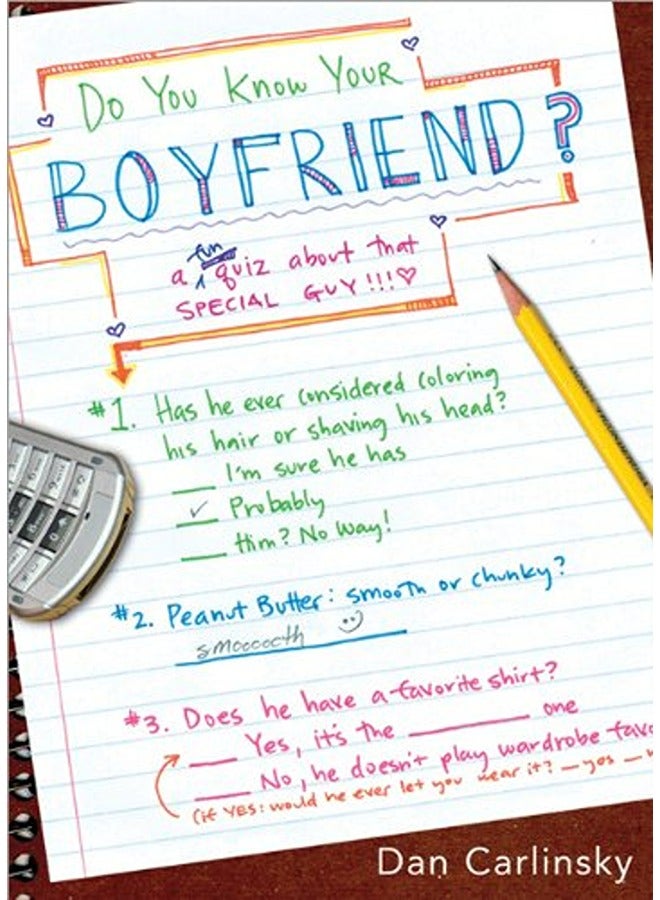 Do You Know Your
BOYFRIEND?
fun
a quiz about that
SPECIAL GUY!!!
#1. Has he ever considered coloring
his hair or shaving his head?
___ I'm sure he has
✓ Probably
___ Him? No way!
#2. Peanut Butter: smooth or chunky?
smooooth
#3. Does he have a favorite shirt?
___ Yes, it's the ___ one
___ No, he doesn't play wardrobe
(if YES: would he ever let you wear it? _ yes _
Dan Carlinsky